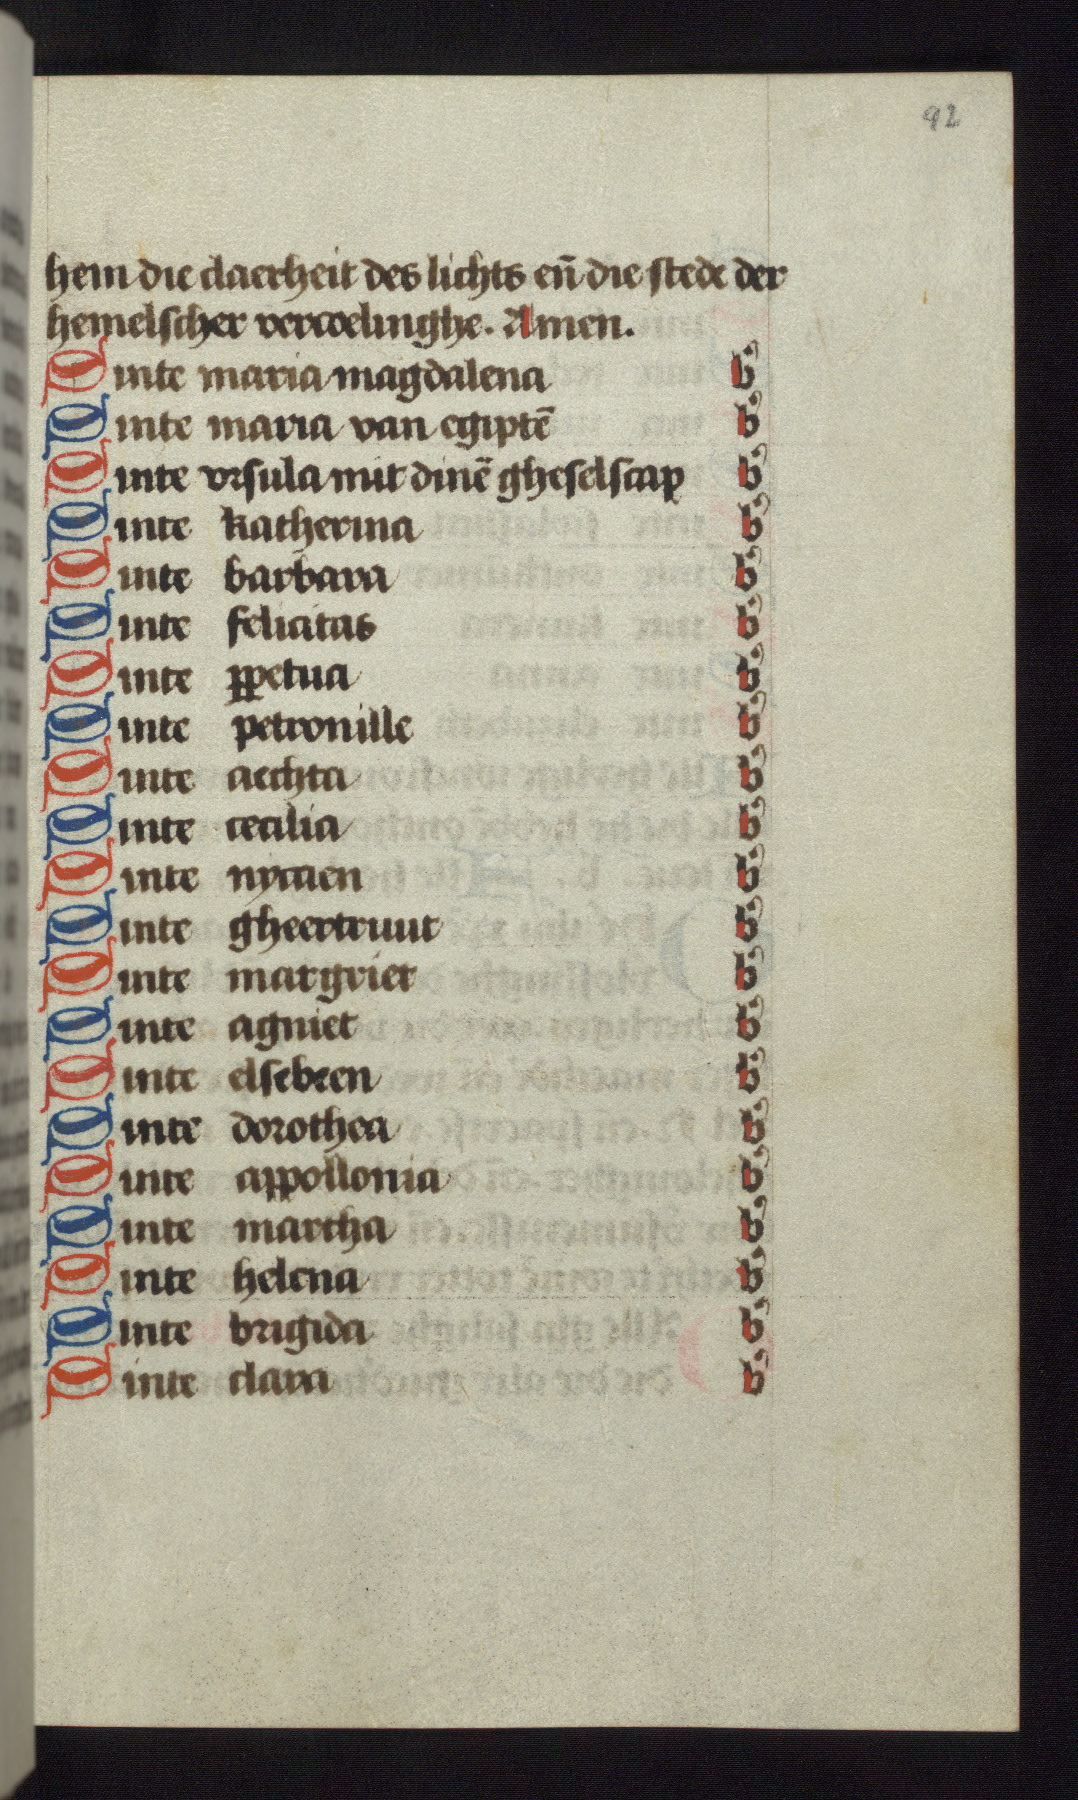 92
hem die claerheit des lichts en̄ die stede der
hemelscher vercoelinghe. Amen.
Sinte maria magdalena b
Sinte maria van egiptē b
Sinte vrsula mit dinē gheselscap b
Sinte katherina b
Sinte barbara b
Sinte felicitas b
Sinte ꝑpetua b
Sinte petronille b
Sinte aechta b
Sinte cecilia b
Sinte nycaen b
Sinte gheertruut b
Sinte margriet b
Sinte agniet b
Sinte elsebeen b
Sinte dorothea b
Sinte appollonia b
Sinte martha b
Sinte helena b
Sinte brigida b
Sinte clara b